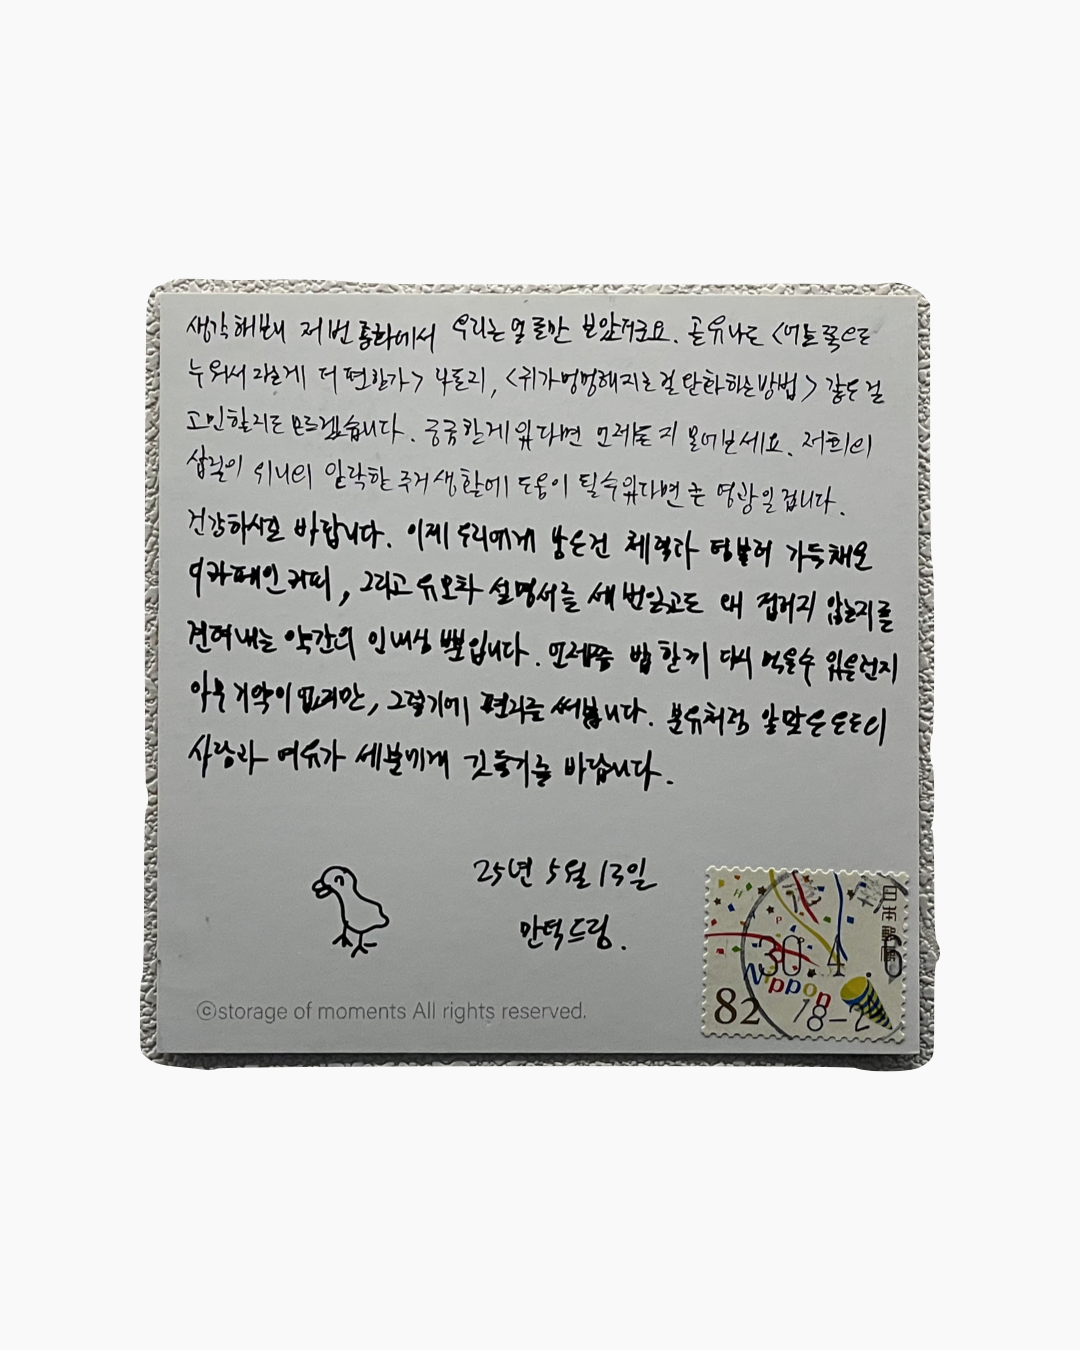 생각해보니 저번 통화에서 우리는 얼굴만 보았더군요. 본유나는 <어느 쪽으로
누워서 자는게 더 편한가> 나
<귀가 멍멍해지는 걸 완화하는 방법> 같은 걸
고민할지도 모르겠습니다. 궁금한게 있다면 언제든지 물어보세요. 저희의
삽질이 위니의 안락한 주거생활에 도움이 될 수 있다면 큰 영광일 겁니다.
건강하시오 바랍니다. 이제 우리에게 남은건 체력과 텀블러 가득채운
디카페인 커피, 그리고 유모차 설명서를 세 번 읽고도 왜 접히지 않는지를
견뎌내는 약간의 인내심 뿐입니다. 언제쯤 밥 한끼 다시 먹을수 있을런지
아무 기약이 없지만, 그렇기에 편지를 써봅니다. 분유처럼 알맞은 온도의
사랑과 여유가 세분에게 깃들기를 바랍니다.
25년 5월 13일
만덕드림.
ⓒstorage of moments All rights reserved.
日本郵便
30 4 6
Nippon
82
18-2